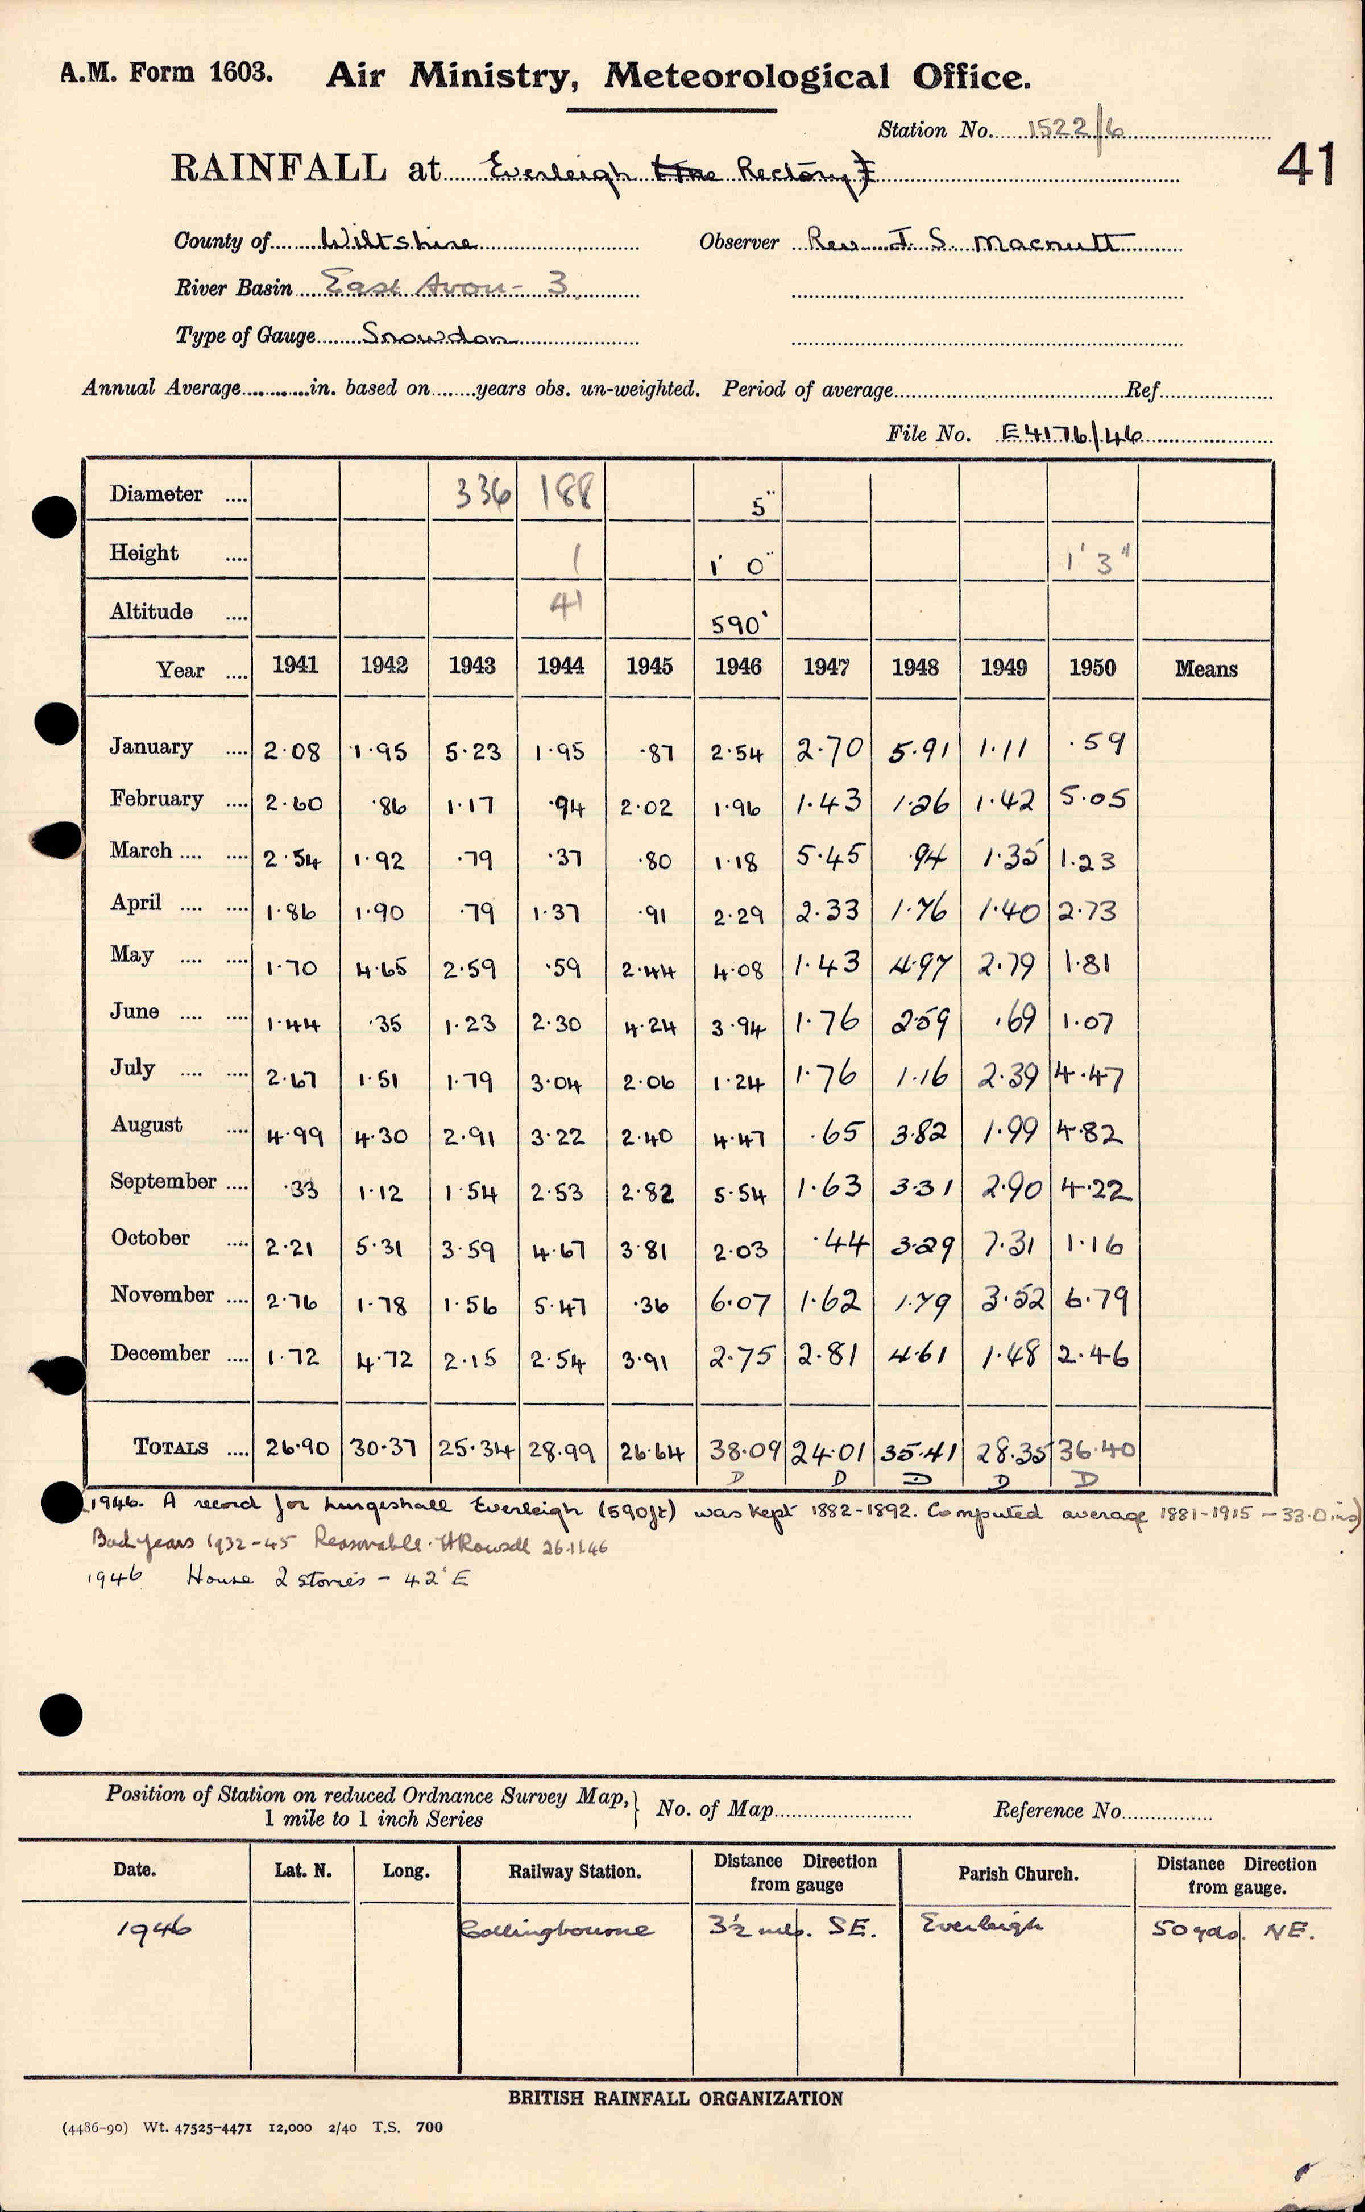 A.M. Form 1603. Air Ministry, Meteorological Office.
Station No. 1522/6
RAINFALL at Everleigh (The Rectory) 41
County of Wiltshire Observer Rev J. S. Macnutt
River Basin East Avon - 3.
Type of Gauge Snowdon
Annual Average in. based on years obs. un-weighted. Period of average Ref.
File No. E4176/46
Diameter 336 188 5"
Height 1 1' 0" 1' 3"
Altitude 41 590'
Year 1941 1942 1943 1944 1945 1946 1947 1948 1949 1950 Means
January 2.08 1.95 5.23 1.95 .87 2.54 2.70 5.91 1.11 .59
February 2.60 .86 1.17 .94 2.02 1.96 1.43 1.26 1.42 5.05
March 2.54 1.92 .79 .37 .80 1.18 5.45 .94 1.35 1.23
April 1.86 1.90 .79 1.37 .91 2.29 2.33 1.76 1.40 2.73
May 1.70 4.65 2.59 .59 2.44 4.08 1.43 4.97 2.79 1.81
June 1.44 .35 1.23 2.30 4.24 3.94 1.76 2.59 .69 1.07
July 2.67 1.51 1.79 3.04 2.06 1.24 1.76 1.16 2.39 4.47
August 4.99 4.30 2.91 3.22 2.40 4.47 .65 3.82 1.99 4.82
September .33 1.12 1.54 2.53 2.82 5.54 1.63 3.31 2.90 4.22
October 2.21 5.31 3.59 4.67 3.81 2.03 .44 3.29 7.31 1.16
November 2.76 1.78 1.56 5.47 .36 6.07 1.62 1.79 3.52 6.79
December 1.72 4.72 2.15 2.54 3.91 2.75 2.81 4.61 1.48 2.46
TOTALS 26.90 30.37 25.34 28.99 26.64 38.09 24.01 35.41 28.35 36.40
D D D D D
1946. A record for Lurgeshall Everleigh (590ft) was kept 1882-1892. Computed average 1881-1915 - 33.0 ins)
Bad years 1932-45 Reasonable. 26.11.46
1946 House 2 stories - 42' E
Position of Station on reduced Ordnance Survey Map,
1 mile to 1 inch Series
No. of Map Reference No.
Date. Lat. N. Long. Railway Station. Distance Direction from gauge Parish Church. Distance Direction from gauge.
1946 Collingbourne 3½ mls. SE. Everleigh 50 yds. NE.
BRITISH RAINFALL ORGANIZATION
(4486-90) Wt. 47525-4471 12,000 2/40 T.S. 700